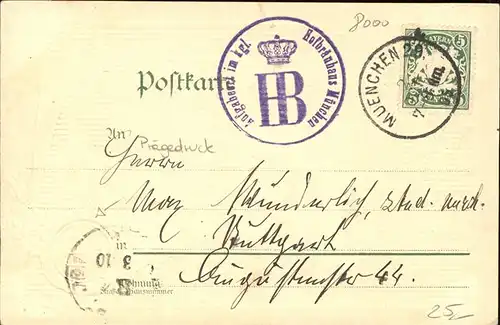 8000
BAYERN
5
Aufgegeben im kgl. Hofbräuhaus München
HB
MUENCHEN 29
7-8 Nm.
Postkarte
An
Prägedruck
Herrn
Max Wunderlich, stud. arch.
in
Stuttgart
3 10
Augustenstr 44.
Wohnung
25,-